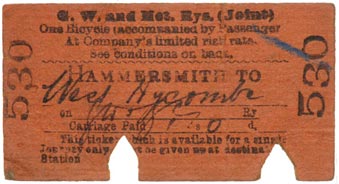 G. W. and Met. Rys. (Joint)
One Bicycle (accompanied by Passenger
At Company's limited risk rate.
See conditions on back.
HAMMERSMITH TO
West Wycombe
on Ry
Carriage Paid 1 s. 0 d.
This ticket which is available for a single
Journey only must be given up at destinat
Station
530
530